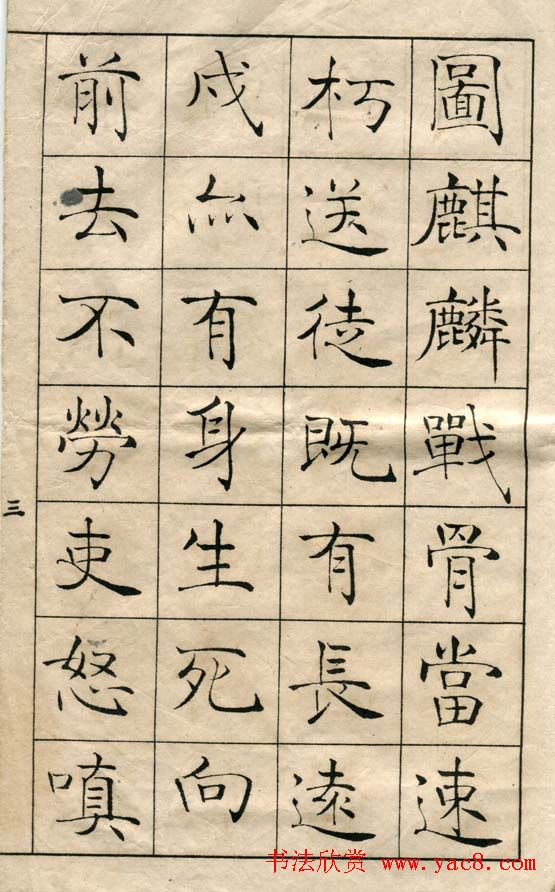 圖麒麟戰骨當速
朽送徒既有長遠
戍亦有身生死向
前去不勞吏怒嗔
三
书法欣赏 www.yac8.com